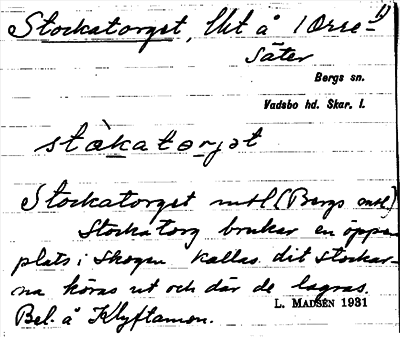 Stockatorget, Ukt å 1 Orre- 1)
Säter
Bergs sn.
Vadsbo hd. Skar. l.
stàkatorjət
Stockatorget mtl (Bergs mtl)
Stockatorg brukar en öppen
plats i skogen kallas dit stockar-
na köras ut och där de lagras.
Bel. å Klyftamon.
L. MADSÉN 1931